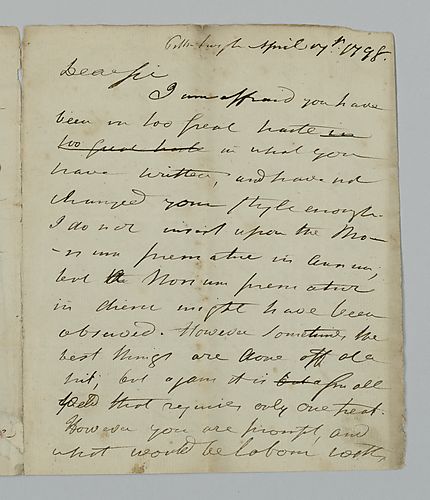 Pittsburgh April 17th. 1798.
Dear Sir
I am affraid you have
been in too Great haste in
too great haste in what you
have written, and have not
changed your style enough.
I do not insist upon the No-
-num prematur in annum;
but the Nonum prematur
in diem might have been
observed. However sometimes the
best things are done off at a
hit; but again it is but a small
that requires only one heat.
However you are prompt, and
what would be labour with